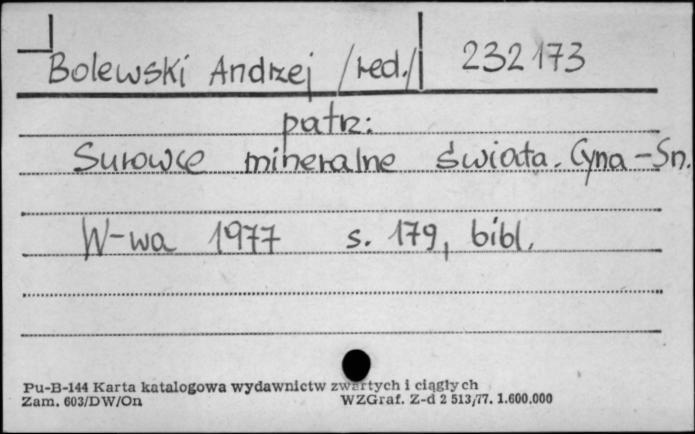 Bolewski Andrzej /red./ 232 173
patrz:
Surowce mineralne świata. Cyna - Sn.
W-wa 1977 s. 179, bibl.
Pu-B-144 Karta katalogowa wydawnictw zwartych i ciągłych
Zam. 603/DW/On WZGraf. Z-d 2 513/77. 1.600.000